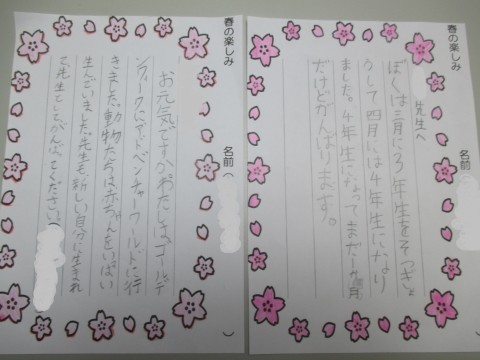 春の楽しみ
名前(
先生へ
ぼくは三月に3年生をそつぎょ
うして四月には4年生になり
ました。4年生になってまだ一か月
だけどがんばります。
春の楽しみ
名前(
お元気ですかわたしはゴールデ
ンウークにアドベンチャーワールドに行
きました。動物たちは赤ちゃんをいっぱい
生んでいました。先生も新しい自分に生まれ
て先生としてがんばってください。